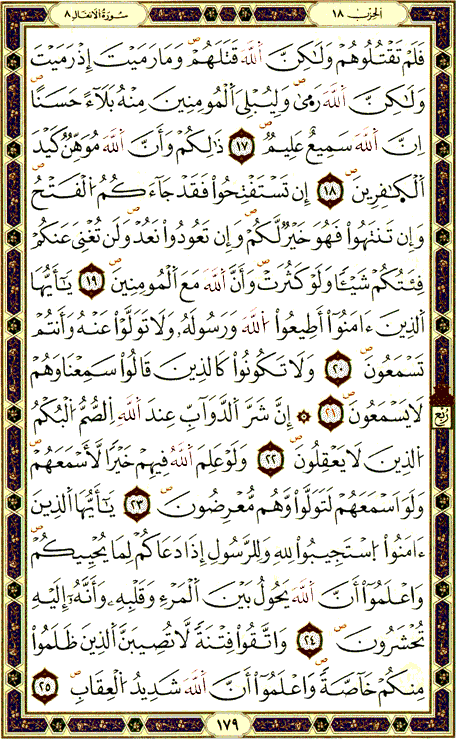 سُورَةُ الْأَنفَالِ ٨ الحِزب ١٨
فَلَمْ تَقْتُلُوهُمْ وَلَٰكِنَّ اَ۬للَّهَ قَتَلَهُمْۖ وَمَا رَمَيْتَ إِذْ رَمَيْتَ
وَلَٰكِنَّ اَ۬للَّهَ رَم۪يٰۖ وَلِيُبْلِيَ اَ۬لْمُومِنِينَ مِنْهُ بَلَآءً حَسَناًۖ
اِنَّ اَ۬للَّهَ سَمِيعٌ عَلِيمٞۖ ١٧ ذَٰلِكُمْ وَأَنَّ اَ۬للَّهَ مُوَهِّنٞ كَيْدَ
اَ۬لْكٰ۪فِرِينَۖ ١٨ إِن تَسْتَفْتِحُواْ فَقَدْ جَآءَكُمُ اُ۬لْفَتْحُۖ
وَإِن تَنتَهُواْ فَهُوَ خَيْرٞ لَّكُمْۖ وَإِن تَعُودُواْ نَعُدْۖ وَلَن تُغْنِيَ عَنكُمْ
فِئَتُكُمْ شَيْـٔاٗ وَلَوْ كَثُرَتْۖ وَأَنَّ اَ۬للَّهَ مَعَ اَ۬لْمُومِنِينَۖ ١٩ يَٰٓأَيُّهَا
اَ۬لذِينَ ءَامَنُوٓاْ أَطِيعُواْ اُ۬للَّهَ وَرَسُولَهُۥ وَلَا تَوَلَّوْاْ عَنْهُ وَأَنتُمْ
تَسْمَعُونَۖ ٢٠ وَلَا تَكُونُواْ كَالذِينَ قَالُواْ سَمِعْنَا وَهُمْ
لَا يَسْمَعُونَۖ ٢١ ۞ إِنَّ شَرَّ اَ۬لدَّوَآبِّ عِندَ اَ۬للَّهِ اِ۬لصُّمُّ اُ۬لْبُكْمُ
رُبُع
اُ۬لذِينَ لَا يَعْقِلُونَۖ ٢٢ وَلَوْ عَلِمَ اَ۬للَّهُ فِيهِمْ خَيْراٗ لَّأَسْمَعَهُمْۖ
وَلَوَ اَسْمَعَهُمْ لَتَوَلَّواْ وَّهُم مُّعْرِضُونَۖ ٢٣ يَٰٓأَيُّهَا اَ۬لذِينَ
ءَامَنُواْ اُ۪سْتَجِيبُواْ لِلهِ وَلِلرَّسُولِ إِذَا دَعَاكُمْ لِمَا يُحْيِيكُمْۖ
وَاعْلَمُوٓاْ أَنَّ اَ۬للَّهَ يَحُولُ بَيْنَ اَ۬لْمَرْءِ وَقَلْبِهِۦ وَأَنَّهُۥٓ إِلَيْهِ
تُحْشَرُونَۖ ٢٤ وَاتَّقُواْ فِتْنَةٗ لَّا تُصِيبَنَّ اَ۬لذِينَ ظَلَمُواْ
مِنكُمْ خَآصَّةٗۖ وَاعْلَمُوٓاْ أَنَّ اَ۬للَّهَ شَدِيدُ اُ۬لْعِقَابِۖ ٢٥
١٧٩